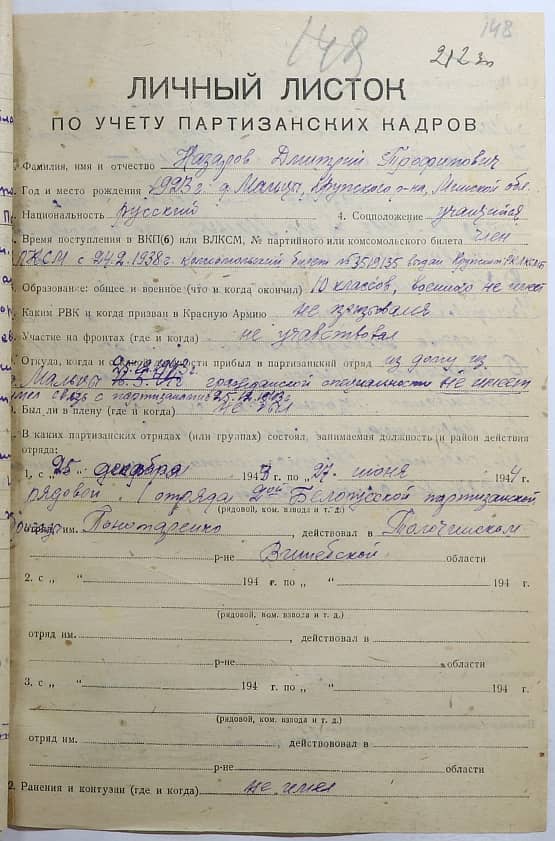 148
148
ЛИЧНЫЙ ЛИСТОК
ПО УЧЕТУ ПАРТИЗАНСКИХ КАДРОВ
Фамилия, имя и отчество Назаров Дмитрий Трофимович
Год и место рождения 1923 г. д. Мальцы, Крупского р-на, Минской обл.
Национальность русский 4. Соцположение учащийся
Время поступления в ВКП(б) или ВЛКСМ, № партийного или комсомольского билета член
ЛКСМ с 24.2.1938 г. Комсомольский билет № 3519135 выдан Крупским РКЛКСМБ
Образование: общее и военное (что и когда окончил) 10 классов, военного не имеет
Каким РВК и когда призван в Красную Армию не призывался
Участие на фронтах (где и когда) не участвовал
Откуда, когда и с прибыл в партизанский отряд из дому из
Мальцы гражданской специальности не имеет
имел связь с партизанами
Был ли в плену (где и когда) не был
В каких партизанских отрядах (или группах) состоял, занимаемая должность и район действия
отряда:
1. с „25 декабря 1943 г. по 27 июня 1944 г.
рядовой 1 отряда 2ой Белорусской партизанской
(рядовой, ком. взвода и т. д.)
им. Пономаренко, действовал в Толочинском
р-не Витебской области
2. с „ “ 194 г. по „ “ 194 г.
(рядовой, ком. взвода и т. д.)
отряд им. , действовал в
р-не области
3. с „ “ 194 г. по „ “ 194 г.
(рядовой, ком. взвода и т. д.)
отряд им. действововал в
р-не области
2. Ранения и контузии (где и когда) не имел